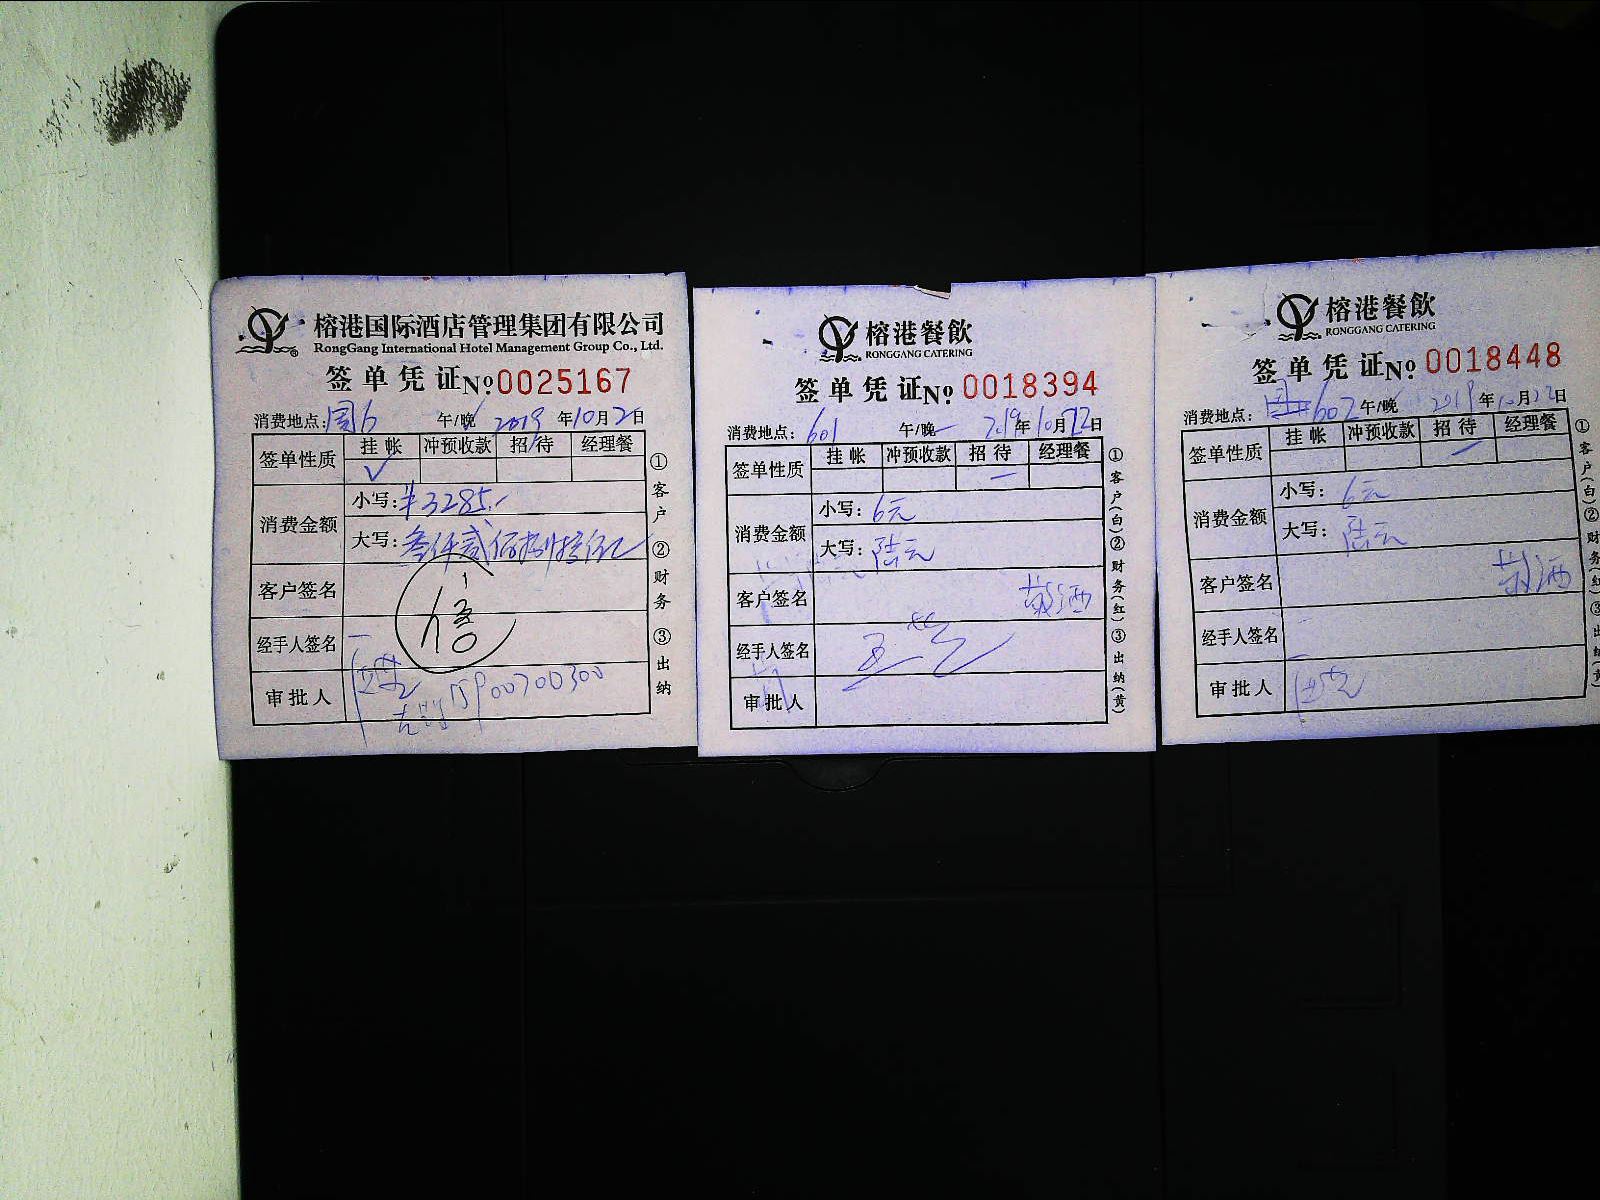 榕港国际酒店管理集团有限公司
RongGang International Hotel Management Group Co., Ltd.
签单凭证 No 0025167
消费地点: 午/晚 2019年10月2日
签单性质 挂帐 冲预收款 招待 经理餐
√
消费金额 小写: ¥3285.-
大写: 叁仟贰佰捌拾伍元
客户签名
经手人签名
审批人
15900700300
①客户 ②财务 ③出纳
榕港餐飲
RONGGANG CATERING
签单凭证 No 0018394
消费地点: 601 午/晚 2019年10月12日
签单性质 挂帐 冲预收款 招待 经理餐
消费金额 小写: 6元
大写: 陆元
客户签名 敬酒
经手人签名
审批人
①客户(白)②财务(红)③出纳(黄)
榕港餐飲
RONGGANG CATERING
签单凭证 No 0018448
消费地点: 602 午/晚 2019年10月12日
签单性质 挂帐 冲预收款 招待 经理餐
消费金额 小写: 6元
大写: 陆元
客户签名 敬酒
经手人签名
审批人
①客户(白)②财务(红)③出纳(黄)